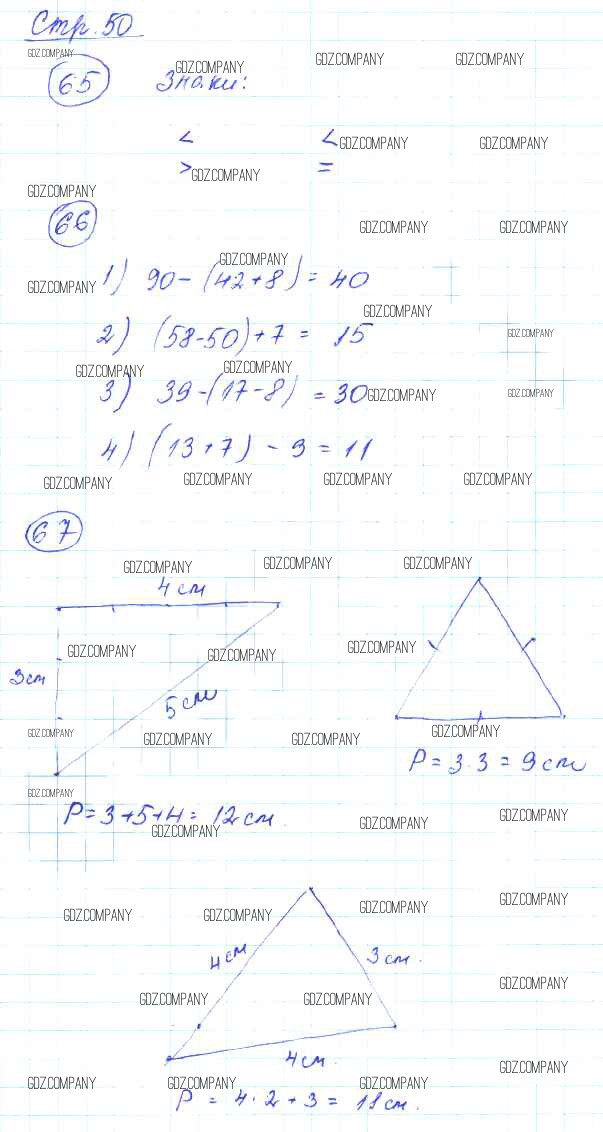 Стр. 50
GDZ.COMPANY
GDZ.COMPANY GDZ.COMPANY GDZ.COMPANY
65 Знаки:
< < GDZ.COMPANY GDZ.COMPANY
> GDZ.COMPANY =
GDZ.COMPANY
66 GDZ.COMPANY GDZ.COMPANY
GDZ.COMPANY
1) 90-(42+8)=40
GDZ.COMPANY
GDZ.COMPANY
2) (58-50)+7= 15
GDZ.COMPANY
GDZ.COMPANY GDZ.COMPANY
3) 39-(17-8) =30 GDZ.COMPANY GDZ.COMPANY
4) (13+7)-9=11
GDZ.COMPANY GDZ.COMPANY GDZ.COMPANY GDZ.COMPANY
67
GDZ.COMPANY GDZ.COMPANY GDZ.COMPANY
4 см
GDZ.COMPANY GDZ.COMPANY GDZ.COMPANY
3см
5 см
GDZ.COMPANY GDZ.COMPANY GDZ.COMPANY GDZ.COMPANY
P=3·3=9см
GDZ.COMPANY
P=3+5+4=12см.
GDZ.COMPANY GDZ.COMPANY GDZ.COMPANY
GDZ.COMPANY GDZ.COMPANY GDZ.COMPANY GDZ.COMPANY
4см 3см.
GDZ.COMPANY GDZ.COMPANY GDZ.COMPANY
4см.
GDZ.COMPANY
GDZ.COMPANY GDZ.COMPANY GDZ.COMPANY
P = 4·2+3= 11см.